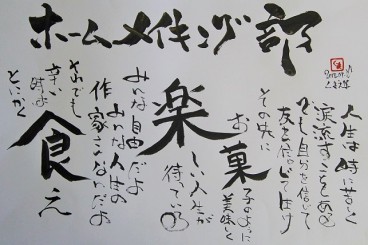 ホームメイキング部
人生は時に苦しく
涙流すこともある
でも自分を信じて
友を信じて
その先に
お菓子のように
美味しく
楽しい人生が
待っている
みんな自由だよ
みんな人生の
作家さんなんだよ
それでも
辛い時は
とにかく
食え